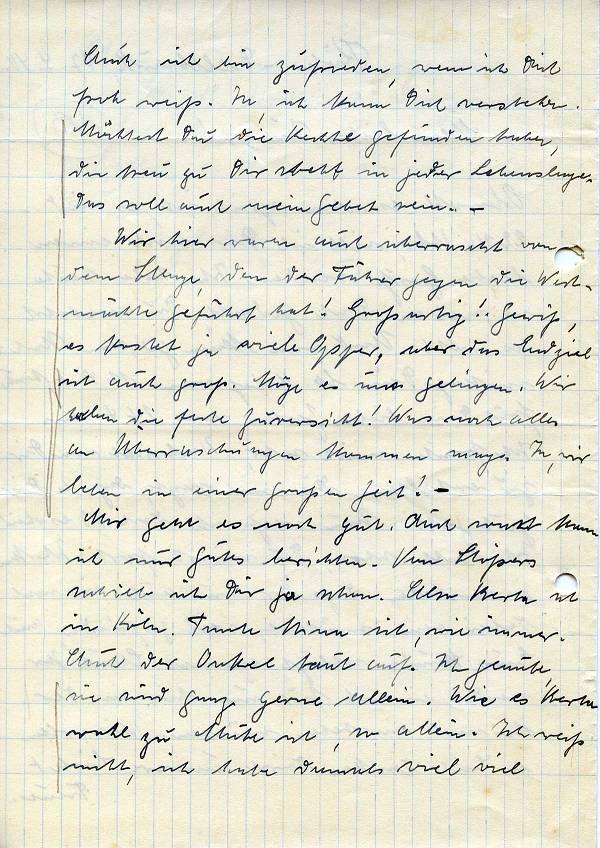 Auch ich bin zufrieden, wenn ich Dich
froh weiß. Ja, ich kann Dich verstehen.
Möchtest Du die Kerthl gefunden haben,
die treu zu Dir steht in jeder Lebenslage.
Das soll auch mein Gebet sein. –
Wir hier waren auch überrascht von
dem Schlage, den der Führer gegen die West-
mächte geführt hat! Großartig! Gewiß,
es kostet ja viele Opfer, aber das Endziel
ist auch groß. Möge es uns gelingen. Wir
haben die feste Zuversicht! Was noch alles
an Überraschungen kommen mag. Ja, wir
leben in einer großen Zeit! –
Mir geht es noch gut. Auch sonst kann
ich nur gutes berichten. Von
schrieb ich Dir ja schon. Also Berta ist
in Köln. Tante Minna ist, wie immer.
Auch der Onkel taut auf. Ich glaube,
sie sind ganz gerne allein. Wie es Berta
wohl zu Mute ist, so allein. Ich weiß
nicht, ich habe damals viel viel